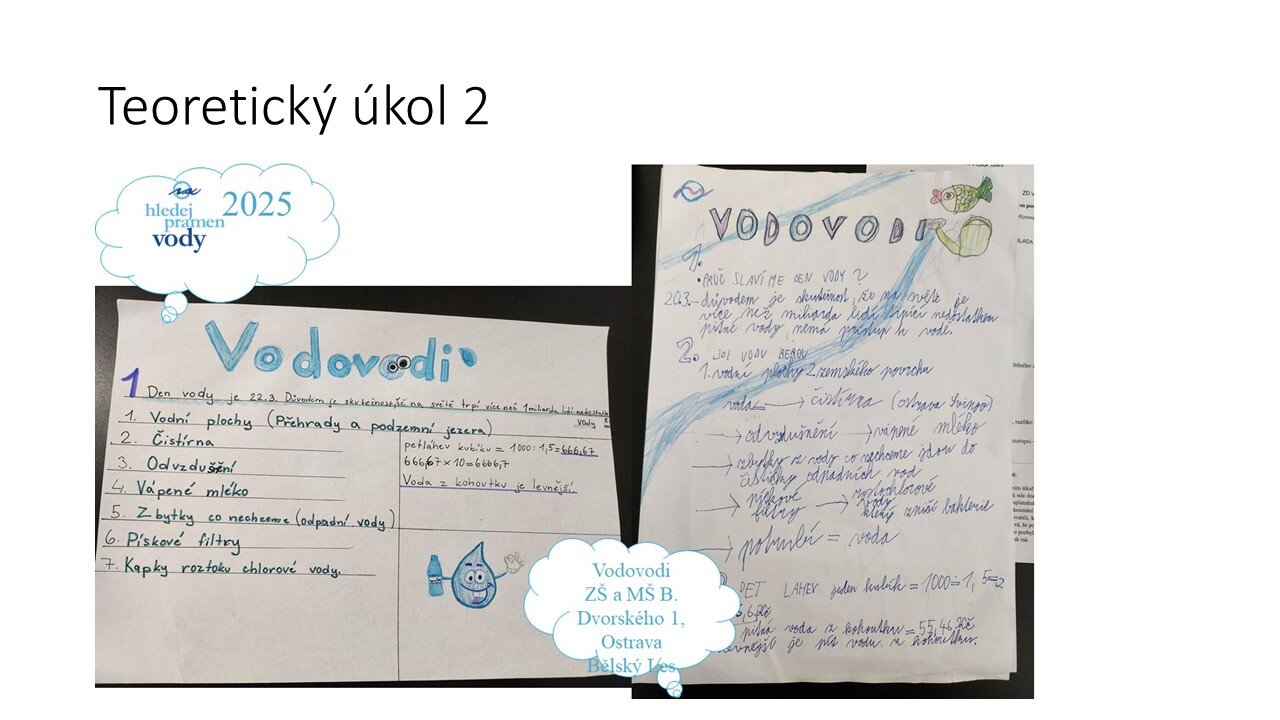 Teoretický úkol 2
hledej
pramen
vody
2025
Vodovodi
1 Den vody je 22.3. Důvodem je skutečnost, že na světě trpí více než 1 miliarda lidí nedostatkem
vody
1. Vodní plochy (Přehrady a podzemní jezera)
2. Čistírna
3. Odvzdušnění
4. Vápené mléko
5. Zbytky co nechceme (odpadní vody)
6. Pískové filtry
7. Kapky roztoku chlorové vody.
petlahev kubíku = 1000 : 1,5 = 666,67
666,67 × 10 = 6666,7
Voda z kohoutku je levnější.
VODOVODI
1.
• PROČ SLAVÍME DEN VODY ?
- důvodem je skutečnost, že na světě je
více než miliarda lidí trpící nedostatkem
pitné vody, nemá přístup k vodě.
2. LIDI VODU BEROU
1. vodní plochy 2. zemského povrchu
voda → čistírna (ostrava
→ odvzdušnění → vápené mléko
→ zbytky z vody co nechceme jdou do
čističky odpadních vod
→ pískové filtry →
vody který zničí bakterie
→ potrubí = voda
PET LAHEV jeden kubík = 1000 : 1,5 =
pitná voda z kohoutku = 55,46 Kč
je pít vodu z kohoutku.
Vodovodi
ZŠ a MŠ B.
Dvorského 1,
Ostrava
Bělský Les